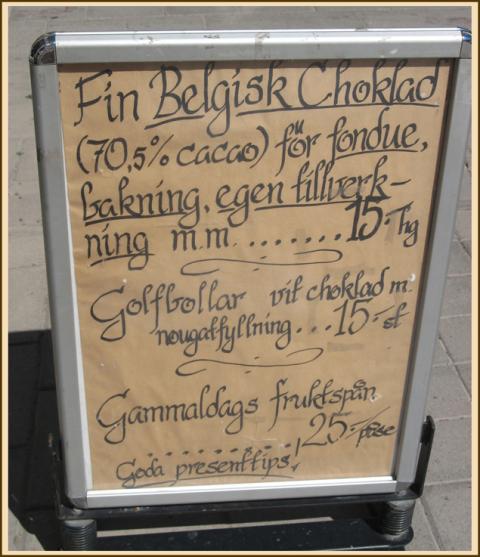 Fin Belgisk Choklad
(70,5% cacao) för fondue,
bakning, egen tillverk-
ning m.m. ....... 15:-/hg
Golfbollar vit choklad m.
nougatfyllning ... 15:-st
Gammaldags fruktspån
........ 25:-/påse
Goda presenttips!